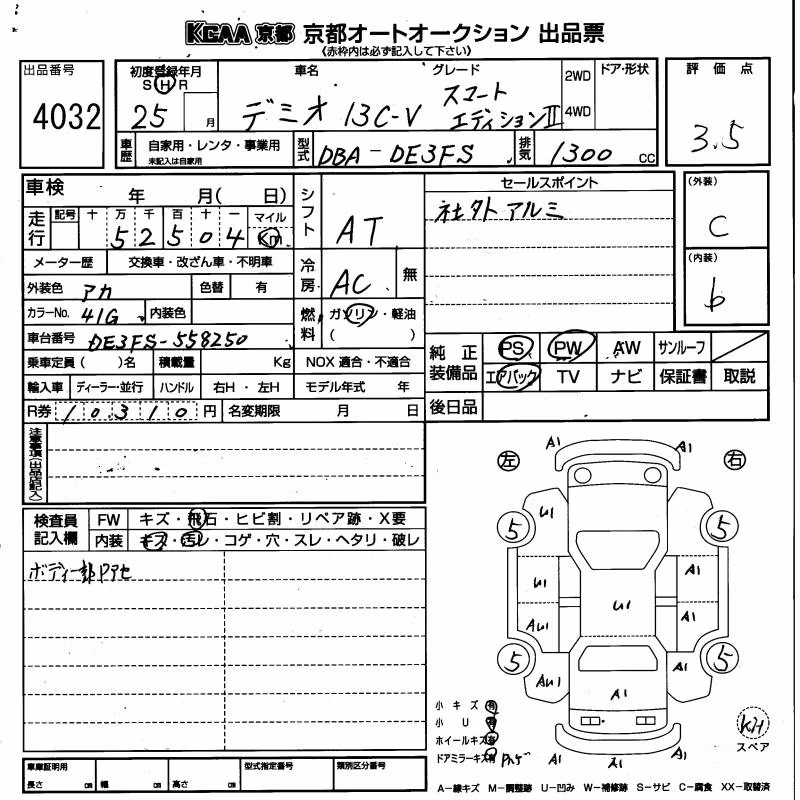 KCAA 京都 京都オートオークション 出品票
《赤枠内は必ず記入して下さい》
出品番号
4032
初度登録年月
S H R
25 月
車名
デミオ 13C-V
グレード
スマート
エディションⅡ
2WD
4WD
ドア・形状
評価点
3.5
車歴
自家用・レンタ・事業用
未記入は自家用
型式
DBA-DE3FS
排気
1300 CC
車検 年 月( 日)
シフト
AT
セールスポイント
社外アルミ
(外装)
C
(内装)
b
走行
記号 十 万 千 百 十 一 マイル
5 2 5 0 4 Km
メーター歴 交換車・改ざん車・不明車
冷房
AC
無
外装色 アカ 色替 有
カラーNo. 41G 内装色
燃料
ガソリン・軽油
( )
車台番号 DE3FS-558250
乗車定員( )名 積載量 Kg NOX 適合・不適合
輸入車 ディーラー・並行 ハンドル 右H・左H モデル年式 年
R券 10310 円 名変期限 月 日
純正装備品
PS PW AW サンルーフ
エアバック TV ナビ 保証書 取説
後日品
注意事項(出品店記入)
検査員記入欄
FW キズ・飛石・ヒビ割・リペア跡・X要
内装 キズ・汚レ・コゲ・穴・スレ・ヘタリ・破レ
ボディー部Pアセ
左 右
A1 A1
U1
5 5
U1 A1
U1
AU1 A1
5 5
AU1 A1
A1
A1 A1 A1
小キズ 有
小U 有
ホイールキズ 有
ドアミラーキズ 有 Pハゲ
スペア
車庫証明用
長さ cm 幅 cm 高さ cm
型式指定番号
類別区分番号
A-線キズ M-調整跡 U-凹み W-補修跡 S-サビ C-腐食 XX-取替済